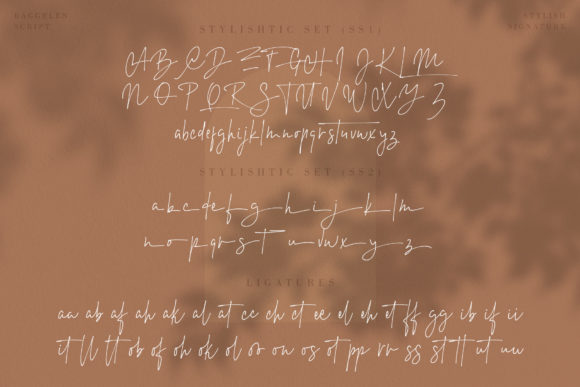 BAGGULEN
SCRIPT
STYLISH
SIGNATURE
STYLISHTIC SET (SS1)
A B C D E F G H I J K L M
N O P Q R S T U V W X Y Z
abcdefghijklmnopqrstuvwxyz
STYLISHTIC SET (SS2)
a b c d e f g h i j k l m
n o p q r s t u v w x y z
LIGATURES
aa ab af ah ak al at cc ch ct ee el eh et ff gg ib if ii
it ll tt ob of oh ok ol oo on os ot pp rr ss st tt ut uu